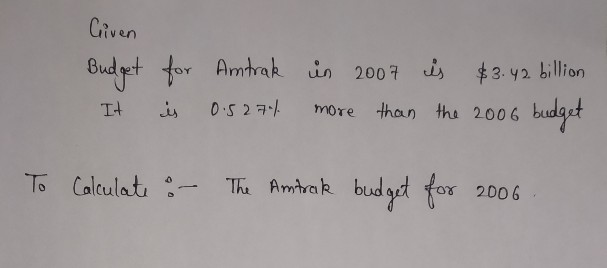 Given
Budget for Amtrak in 2007 is $3.42 billion
It is 0.527% more than the 2006 budget
To Calculate :- The Amtrak budget for 2006.